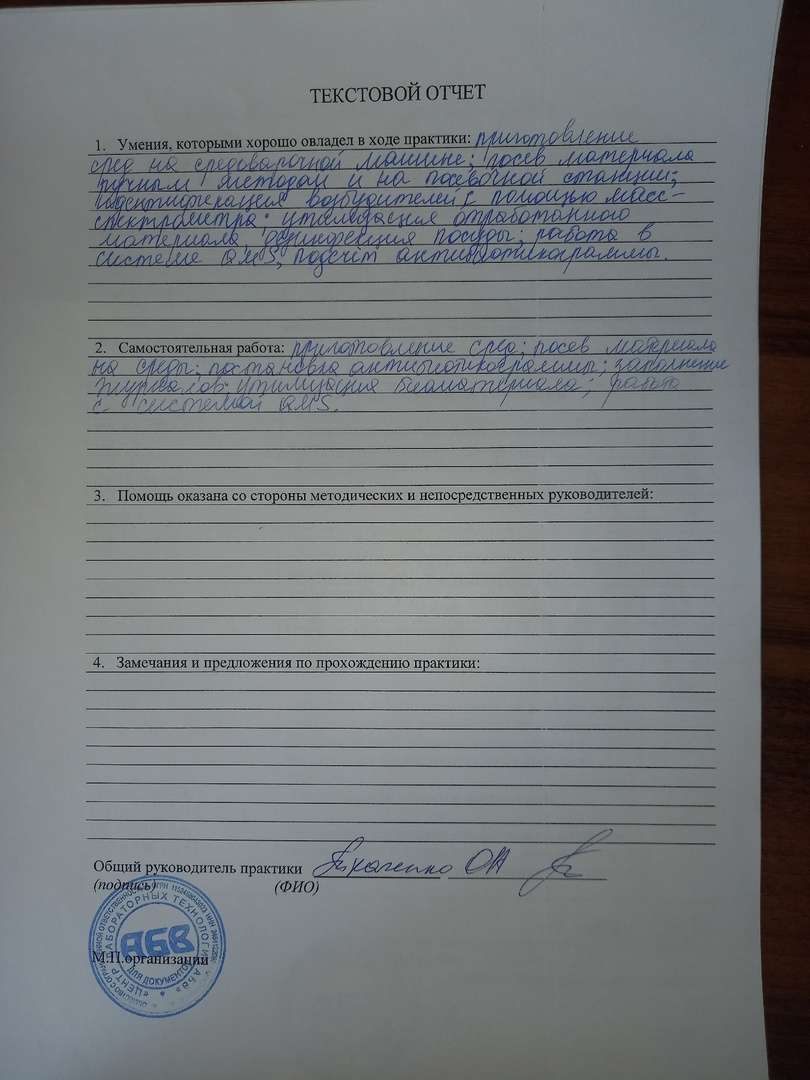 ТЕКСТОВОЙ ОТЧЕТ
1. Умения, которыми хорошо овладел в ходе практики: приготовление
сред на средоварочной машине; посев материала
ручным методом и на посевочной станции;
идентификация возбудителей с помощью масс-
спектрометра; утилизация отработанного
материала, дезинфекция посуды; работа в
системе QMS, подсчёт антибиотикограммы.
2. Самостоятельная работа: приготовление сред; посев материала
на среды; постановка антибиотикограммы; заполнение
журналов; утилизация биоматериала; работа
с системой QMS.
3. Помощь оказана со стороны методических и непосредственных руководителей:
4. Замечания и предложения по прохождению практики:
Общий руководитель практики Ткаченко ОН
(подпись) (ФИО)
М.П.организации
АБВ
ДЛЯ ДОКУМЕНТОВ
«ЦЕНТР ЛАБОРАТОРНЫХ ТЕХНОЛОГИЙ АБВ»